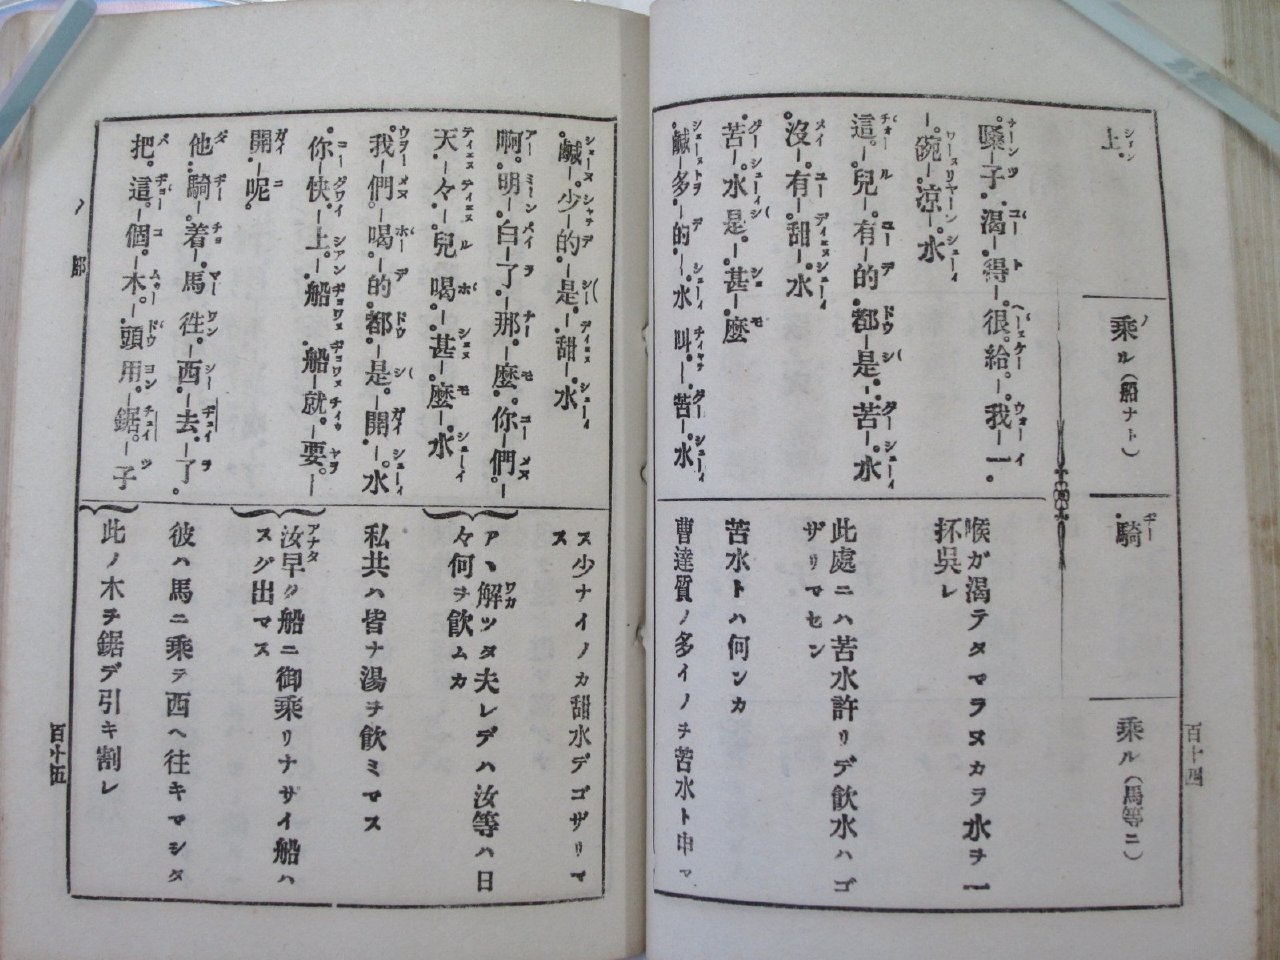 上
乘ル(船ナト)
騎
乘ル(馬等ニ)
嗓子渴得很給我一
碗涼水
喉ガ渴テタマラヌカラ水ヲ一
抔吳レ
這兒有的都是苦水
沒有甜水
此處ニハ苦水許リデ飮水ハゴ
ザリマセン
苦水是甚麼
苦水トハ何ンカ
鹹多的水叫苦水
曹達質ノ多イノヲ苦水ト申マ
百十四
鹹少的是甜水
ス少ナイノカ甜水デゴザリマ
ス
啊明白了那麼你們
天々兒喝甚麼水
アヽ解ツタ夫レデハ汝等ハ日
々何ヲ飮ムカ
我們喝的都是開水
私共ハ皆ナ湯ヲ飮ミマス
你快上船船就要
開呢
汝早ク船ニ御乘リナサイ船ハ
スグ出マス
他騎着馬徃西去了
彼ハ馬ニ乘テ西ヘ往キマシタ
把這個木頭用鋸子
此ノ木ヲ鋸デ引キ割レ
ノ部
百十五